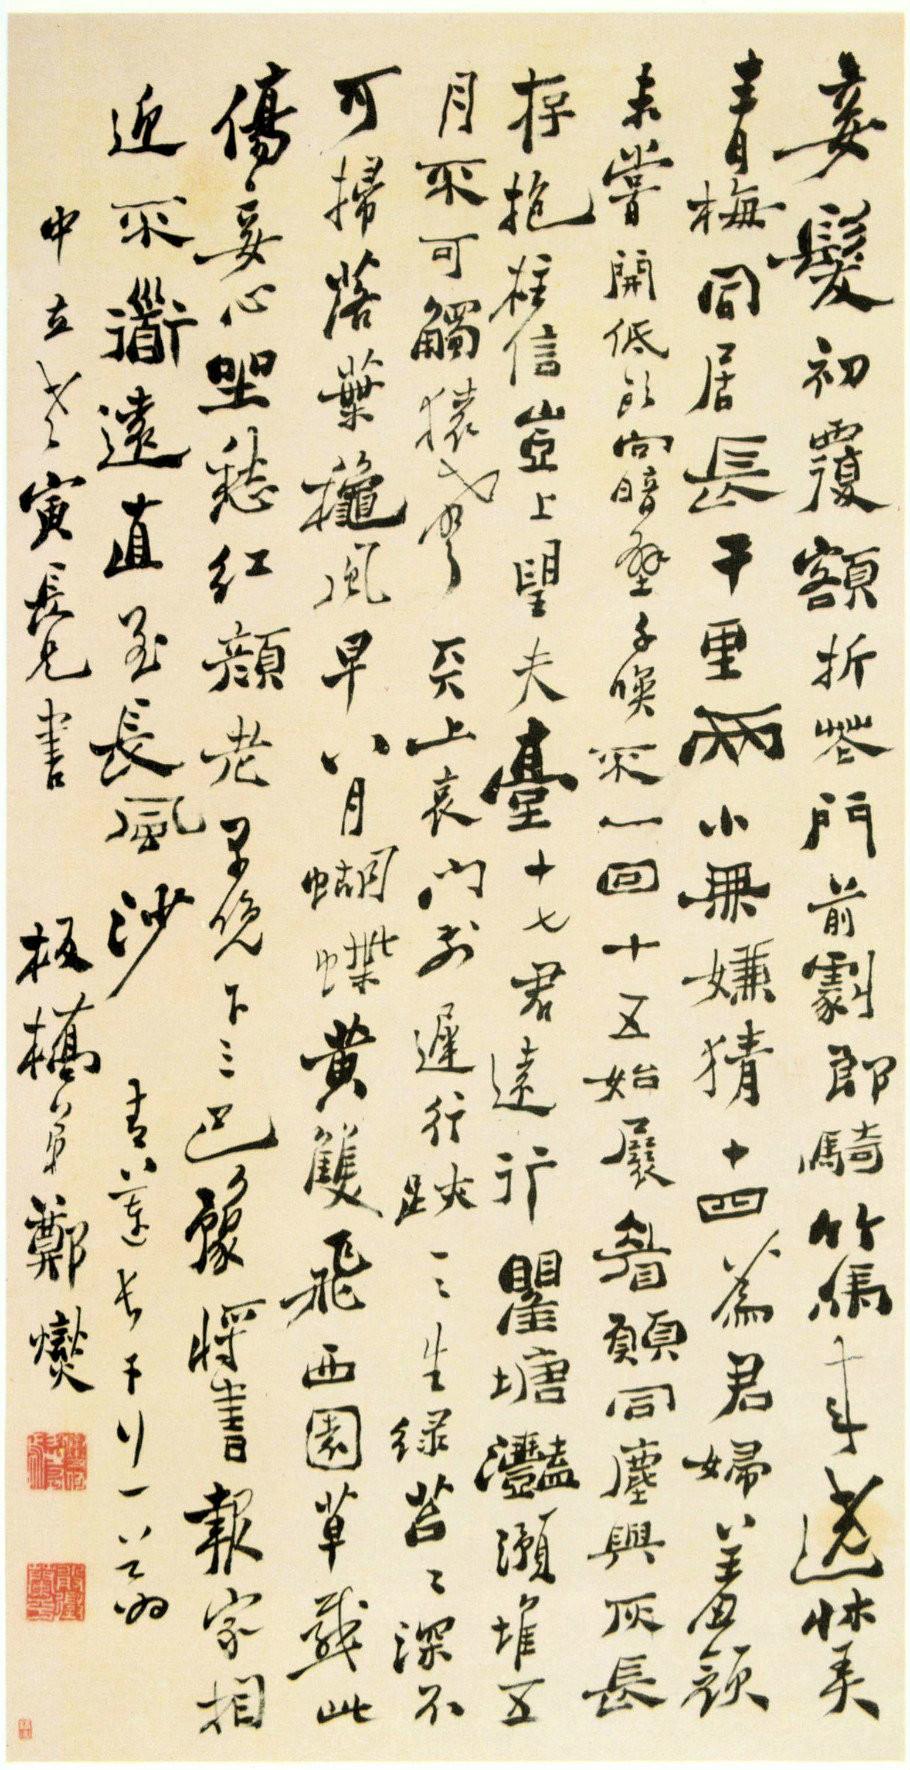 妾髮初覆額折花門前劇郎騎竹馬來遶牀弄
青梅同居長干里兩小無嫌猜十四為君婦羞顏
未嘗開低頭向暗壁千喚不一回十五始展眉願同塵與灰長
存抱柱信豈上望夫臺十七君遠行瞿塘灩澦堆五
月不可觸猿聲天上哀門前遲行跡一〻生綠苔〻深不
可掃落葉秋風早八月蝴蝶黃雙飛西園草感此
傷妾心坐愁紅顏老早晚下三巴豫將書報家相
近不道遠直至長風沙 青蓮長干行一首為
中立老寅長兄書 板橋弟鄭燮